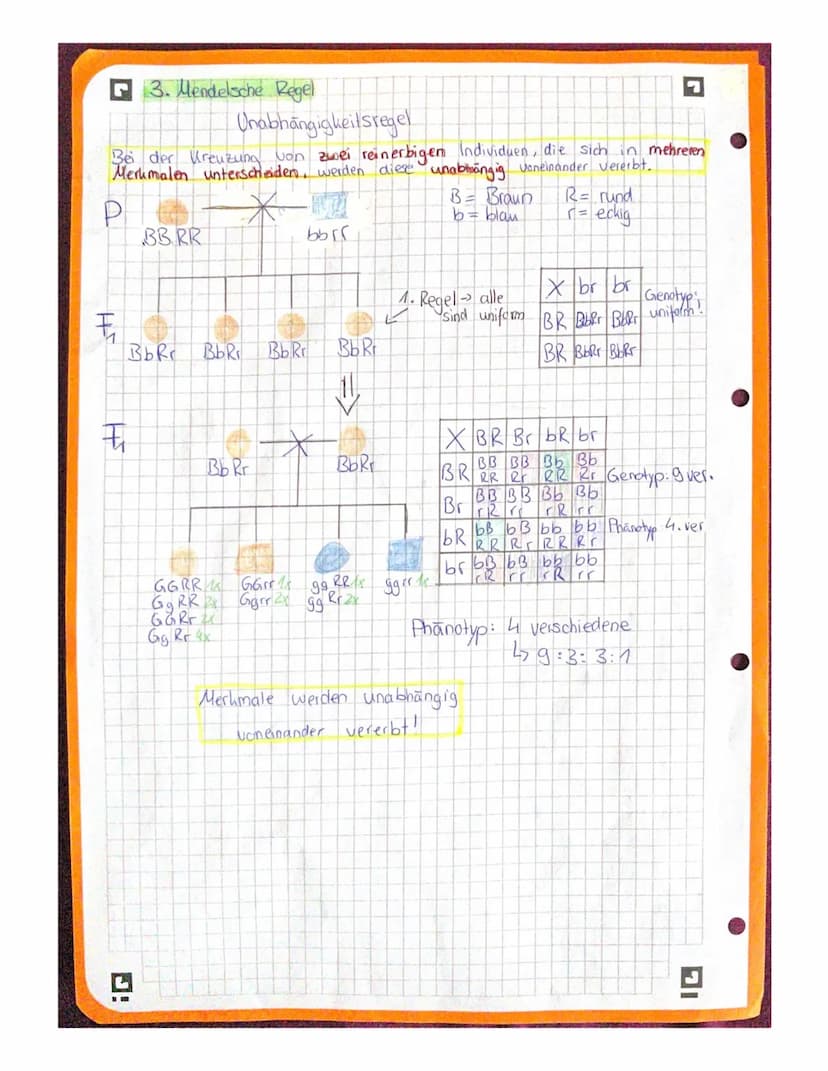 3. Mendelsche Regel
Unabhängigkeitsregel
Bei der Kreuzung von zwei reinerbigen Individuen, die sich in mehreren
Merkmalen unterscheiden, werden diese unabhängig voneinander vererbt.
P
BBRR
bbrr
B = Braun R = rund
b = blau r = eckig
F1
BbRr BbRr BbRr BbRr
1. Regel → alle
sind uniform
X br br
BR BbRr BbRr
BR BbRr BbRr
Genotyp:
uniform!
F1
BbRr BbRr
X BR Br bR br
BR BB BB Bb Bb
RR Rr RR Rr
Br BB BB Bb Bb
rR rr rR rr
bR bB bB bb bb
RR Rr RR Rr
br bB bB bb bb
rR rr rR rr
Genotyp: 9 ver.
Phänotyp 4. ver
GGRR 1x GGrr 1x ggRR 1x ggrr 1x
GgRR 2x Ggrr 2x ggRr 2x
GGRr 2x
GgRr 4x
Phänotyp: 4 verschiedene
↳ 9:3:3:1
Merkmale werden unabhängig
voneinander vererbt!